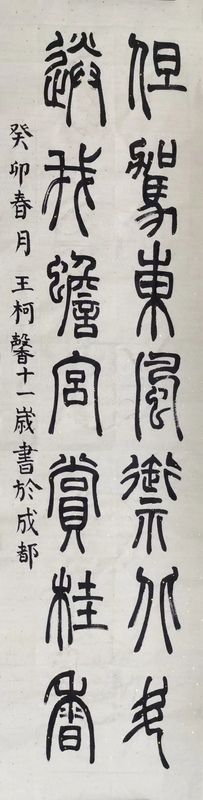 但駕東風禦
送我蟾宮賞桂香
癸卯春月王柯馨十一歲書於成都